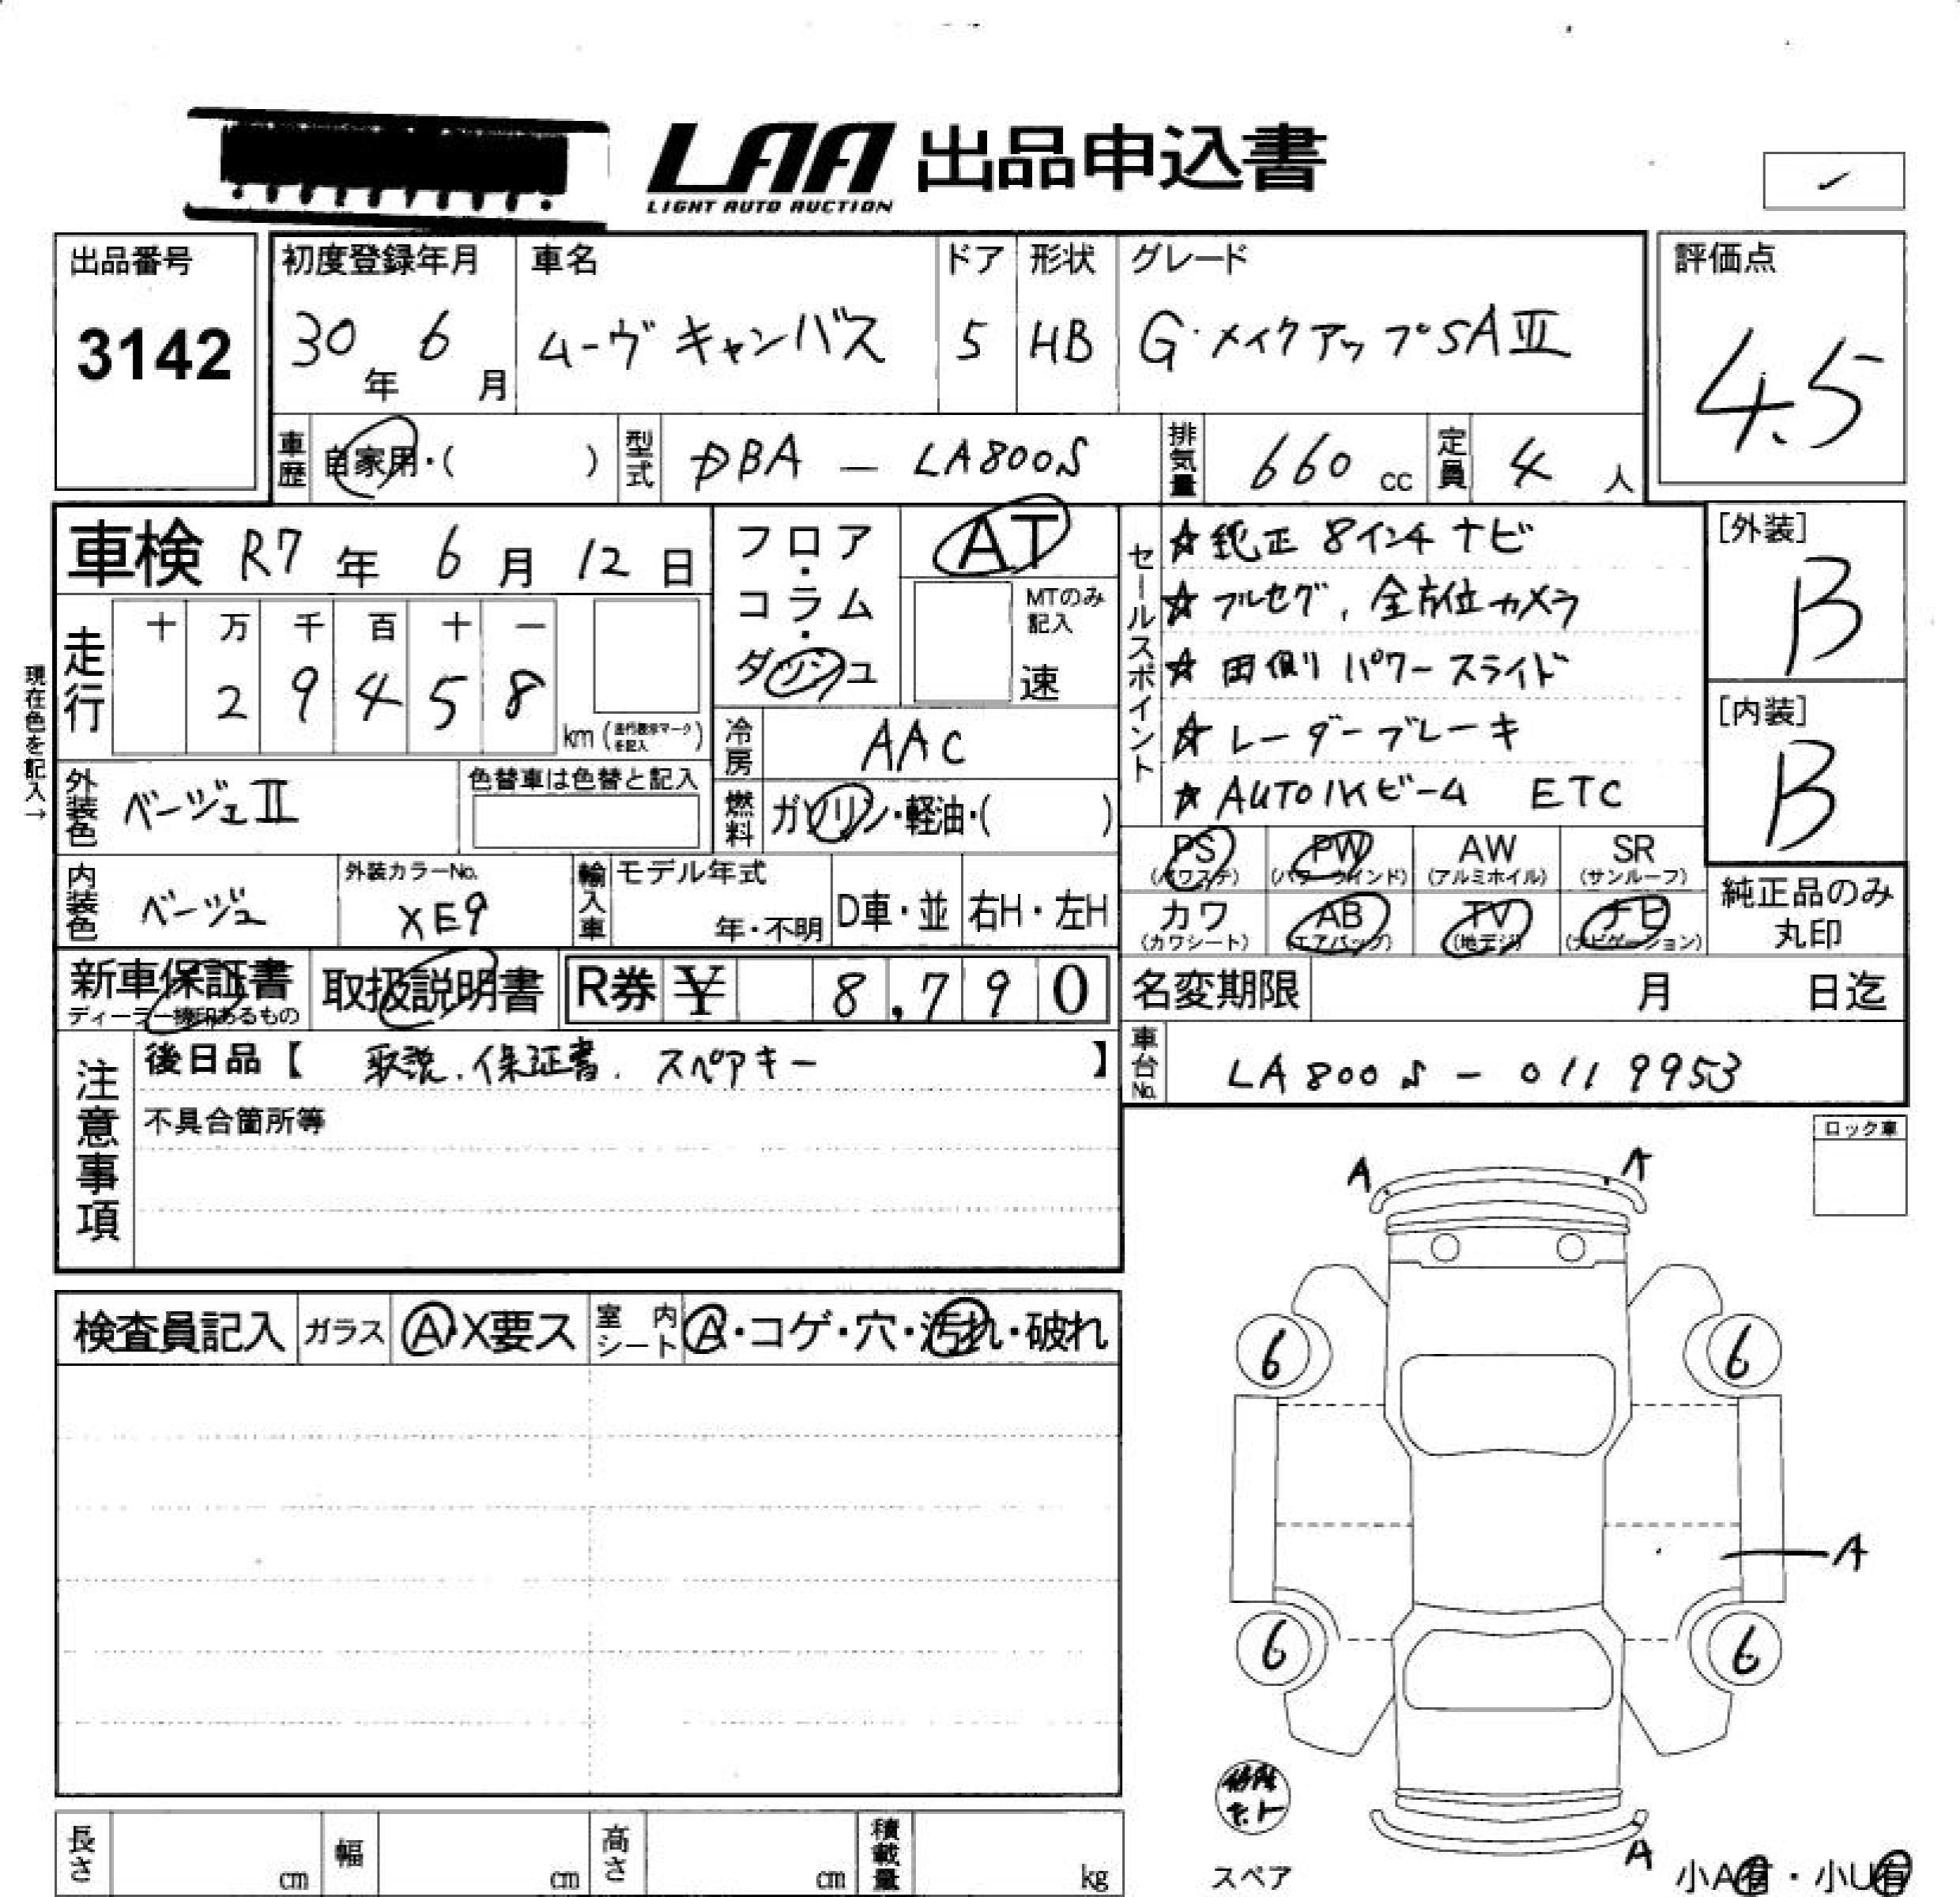 LAA 出品申込書
LIGHT AUTO AUCTION
出品番号
3142
初度登録年月 車名 ドア 形状 グレード
30年 6月 ムーヴキャンバス 5 HB G・メイクアップSAⅢ
評価点
4.5
車歴 自家用・( ) 型式 DBA - LA800S 排気量 660 cc 定員 4 人
車検 R7年 6月 12日
フロア・コラム・ダッシュ
AT
MTのみ記入
速
走行 十 万 千 百 十 一
2 9 4 5 8
km (走行表示マークを記入)
現在色を記入→
冷房 AAC
外装色 ベージュⅡ 色替車は色替と記入
燃料 ガソリン・軽油・( )
内装色 ベージュ 外装カラーNo. XE9
輸入車 モデル年式 年・不明 D車・並 右H・左H
セールスポイント
☆純正 8インチ ナビ
☆フルセグ、全方位カメラ
☆両側パワースライド
☆レーダーブレーキ
☆AUTOハイビーム ETC
[外装]
B
[内装]
B
PS (パワステ) PW (パワーウインド) AW (アルミホイル) SR (サンルーフ)
カワ (カワシート) AB (エアバッグ) TV (地デジ) ナビ (ナビゲーション)
純正品のみ丸印
新車保証書 ディーラー捺印あるもの
取扱説明書
R券 ¥ 8,790
名変期限 月 日迄
車台No. LA800S - 0119953
注意事項
後日品【 取説、保証書、スペアキー 】
不具合箇所等
ロック車
検査員記入 ガラス A・X要ス 室内シート A・コゲ・穴・汚れ・破れ
A A
6 6
A
6 6
A
修理キット
スペア
小A有・小U有
長さ cm 幅 cm 高さ cm 積載量 kg